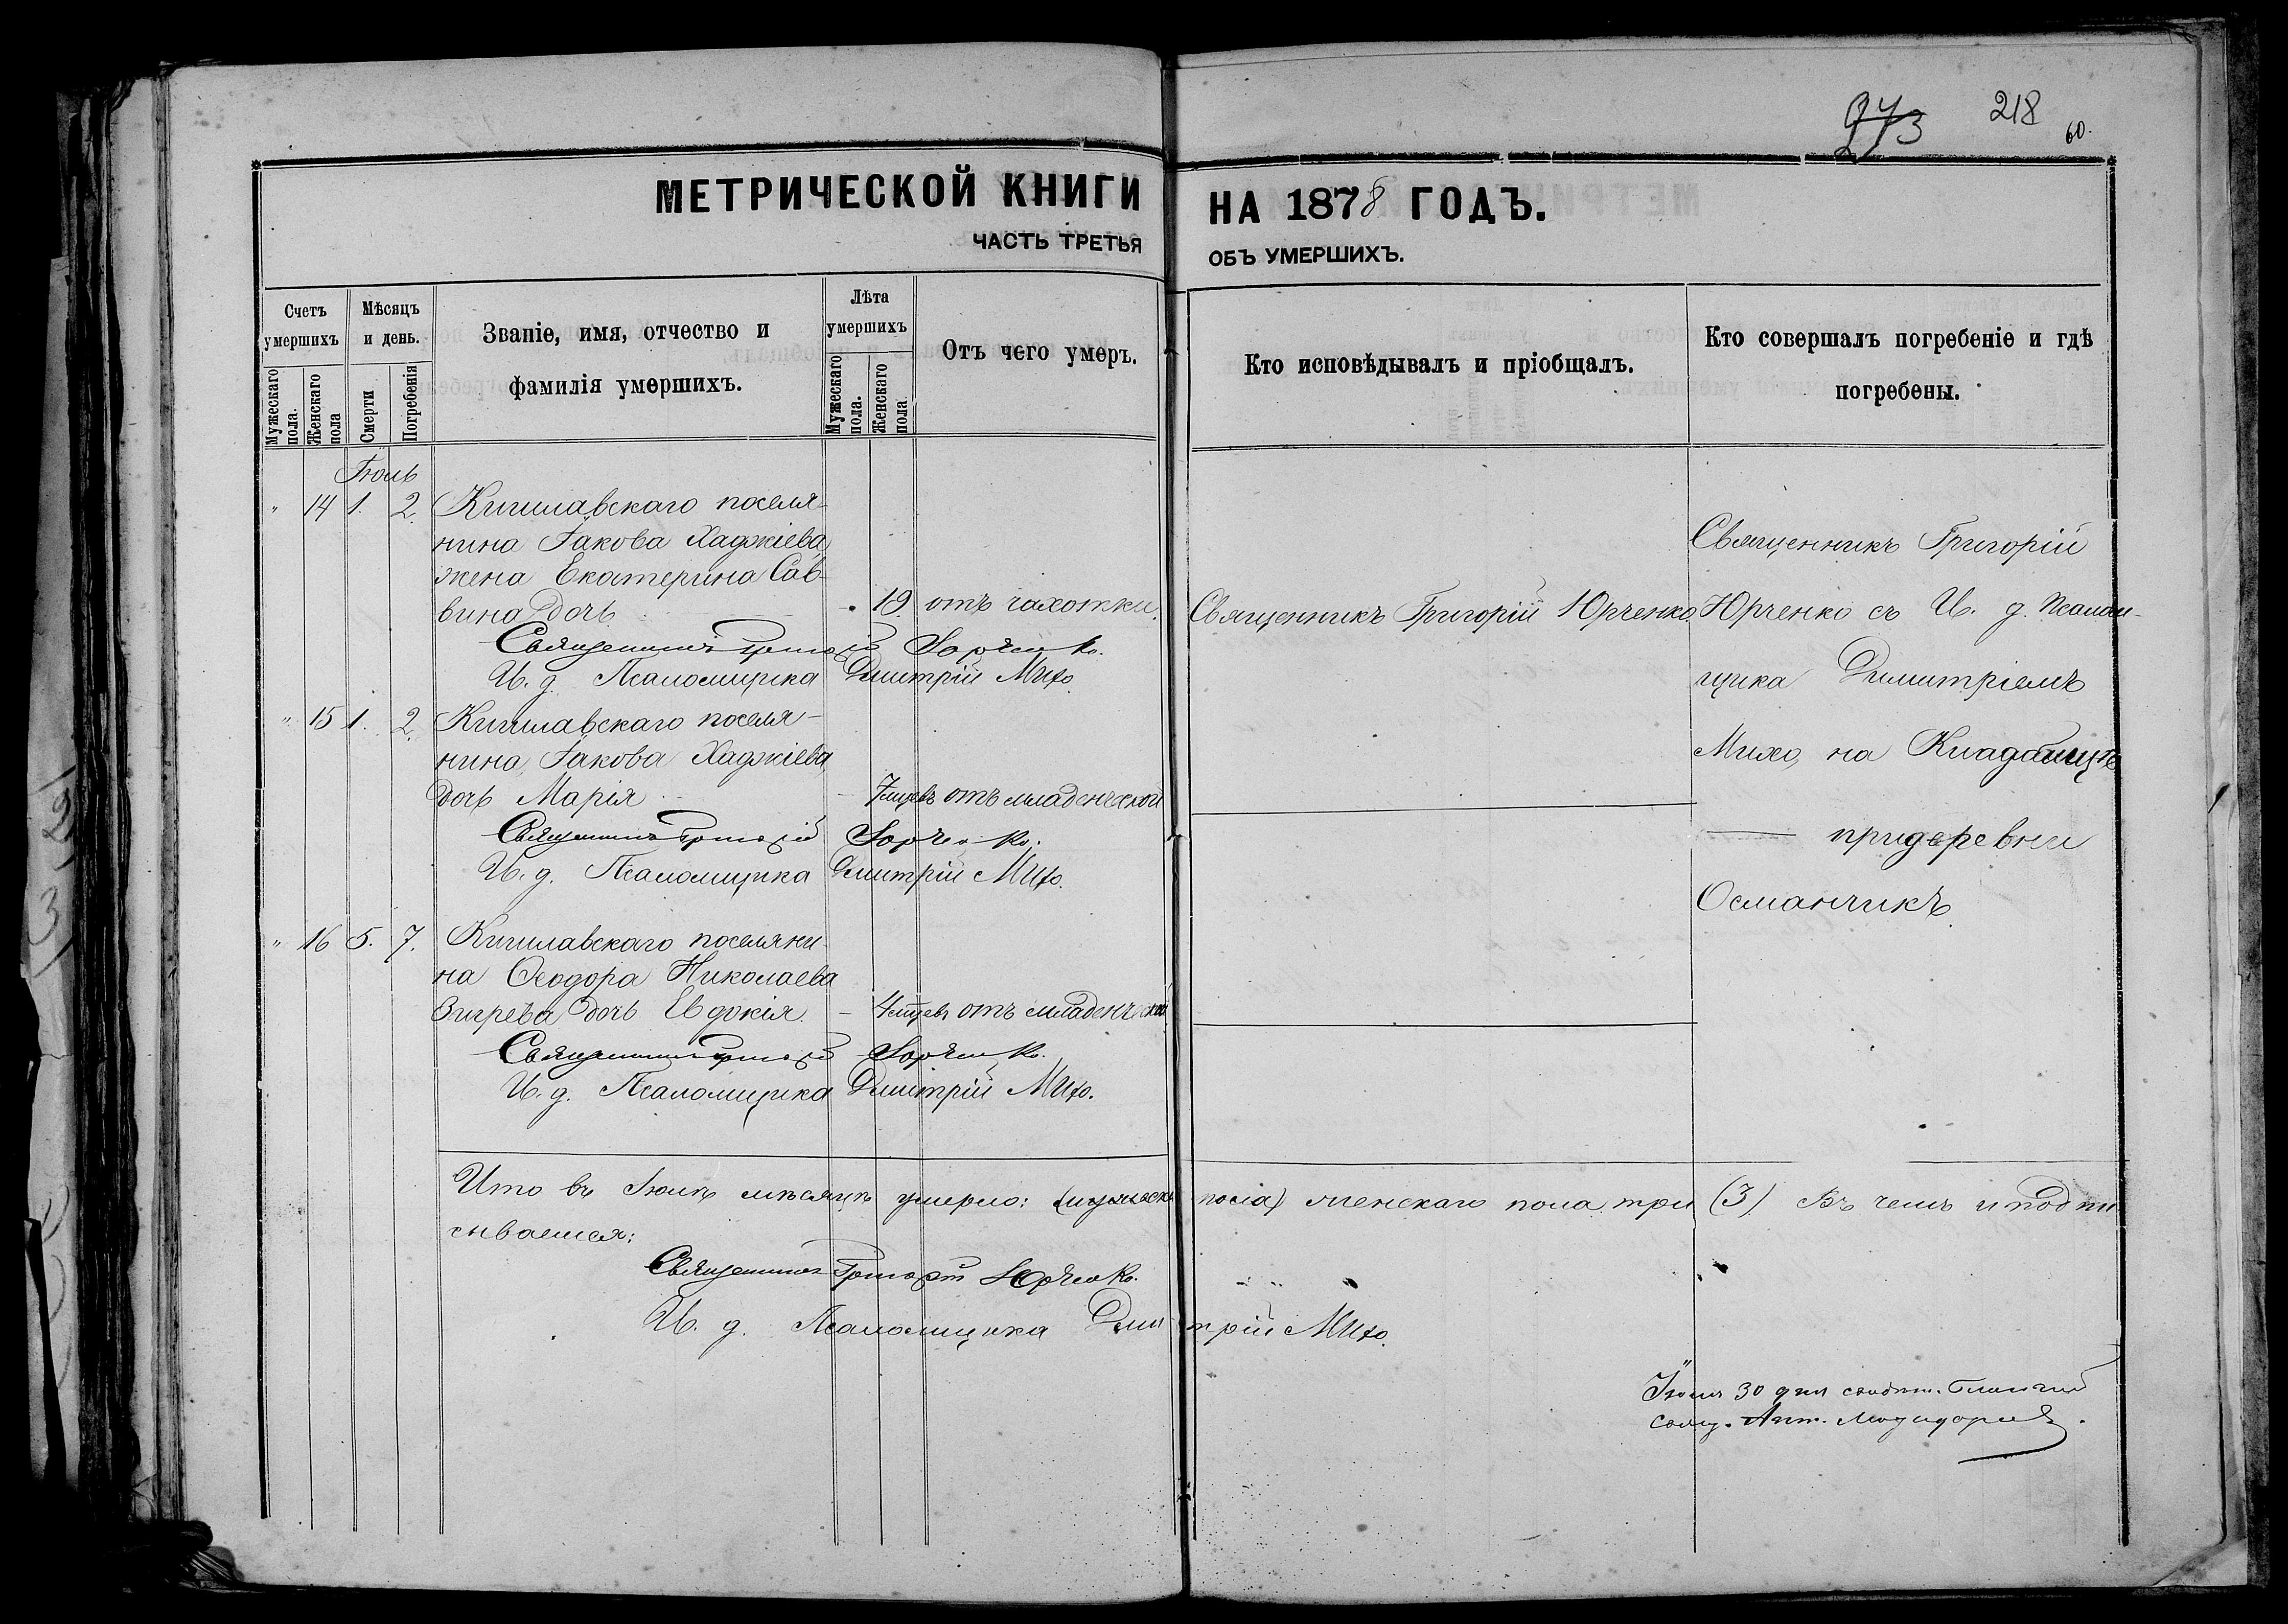 273 218 60.
МЕТРИЧЕСКОЙ КНИГИ НА 1878 ГОДЪ.
ЧАСТЬ ТРЕТЬЯ ОБЪ УМЕРШИХЪ.
Счетъ умершихъ
Мужескаго пола.
Женскаго пола
Мѣсяцъ и день.
Смерти
Погребенія
Званіе, имя, отчество и фамилія умершихъ.
Лѣта умершихъ
Мужескаго пола.
Женскаго пола
Отъ чего умеръ.
Кто исповѣдывалъ и пріобщалъ.
Кто совершалъ погребеніе и гдѣ погребены.
Іюль
" 14 1. 2. Кишлавскаго поселя-
нина Іакова Хаджіева
жена Екатерина Сав-
вина дочь 19 отъ чахотки.
Священникъ Григорій Юрченко.
И. д. Псаломщика Димитрій Михо.
Священникъ Григорій Юрченко
Священникъ Григорій
Юрченко съ И. д. Псалом-
щика Димитріемъ
Михо, на Кладбищѣ
при деревни
Османчикъ.
" 15 1. 2. Кишлавскаго поселя-
нина, Іакова Хаджіева
дочь Марія 7 мцевъ отъ младенческой
Священникъ Григорій Юрченко.
И. д. Псаломщика Димитрій Михо.
" 16 5. 7. Кишлавскаго поселяни-
на Ѳеодора Николаева
дочь Евдокія. 4 мцевъ отъ младенческой
Священникъ Григорій Юрченко.
И. д. Псаломщика Димитрій Михо.
Итого въ Іюлѣ мѣсяцѣ умерло: (мужеска пола) женскаго пола три (3) Въ чемъ и подпи-
сываемся:
Священникъ Григорій Юрченко.
И. д. Псаломщика Димитрій Михо.
30 дня